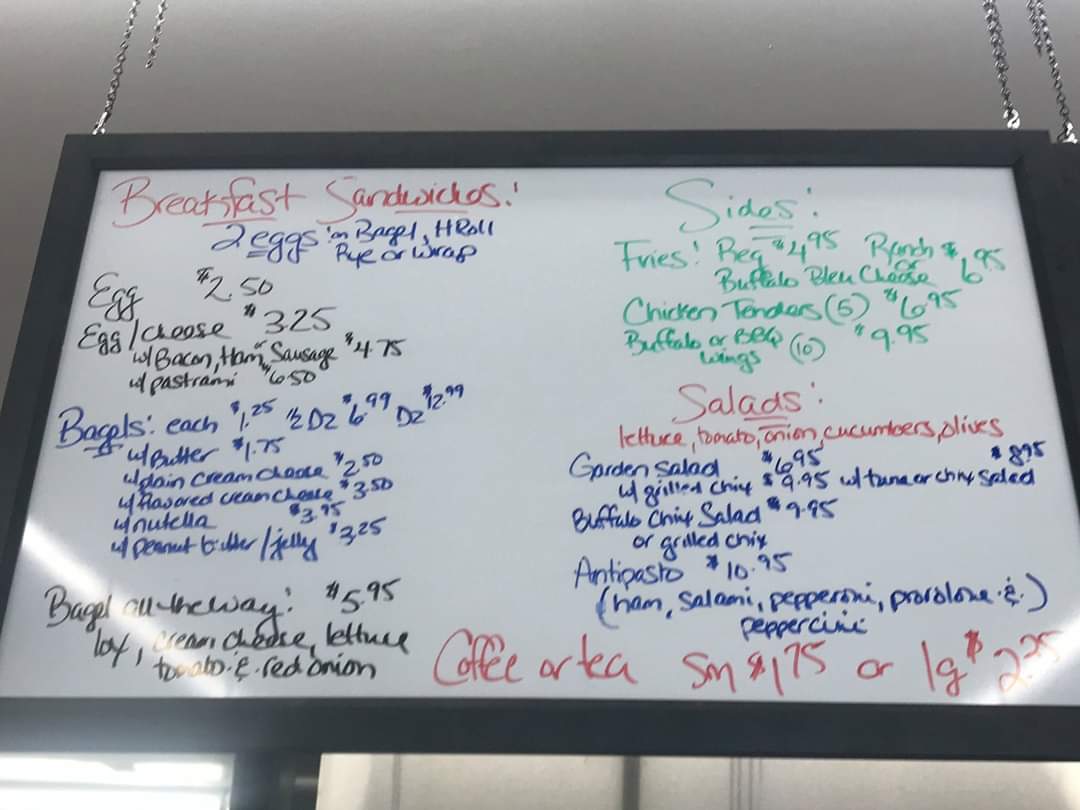 Breakfast Sandwiches!
2 eggs on Bagel, H Roll
Rye or Wrap
Egg $2.50
Egg/cheese $3.25
w/ Bacon, Ham or Sausage $4.75
w/ pastrami $6.50
Bagels: each $1.25 ½ Dz $6.99 Dz $12.99
w/ Butter $1.75
w/ plain cream cheese $2.50
w/ flavored cream cheese $3.50
w/ nutella $3.95
w/ peanut butter/jelly $3.25
Bagel all-the-way: $5.95
lox, cream cheese, lettuce
tomato & red onion
Sides:
Fries! Reg $4.95 Ranch $6.95
or
Buffalo Bleu Cheese
Chicken Tenders (5) $6.95
Buffalo or BBQ $9.95
wings (10)
Salads:
lettuce, tomato, onion, cucumbers, olives
Garden Salad $6.95 $8.95
w/ grilled chix $9.95 w/ tuna or chix salad
Buffalo Chix Salad $9.95
or grilled chix
Antipasto $10.95
(ham, salami, pepperoni, provolone & )
peppercini
Coffee or tea Sm $1.75 or lg $2.25